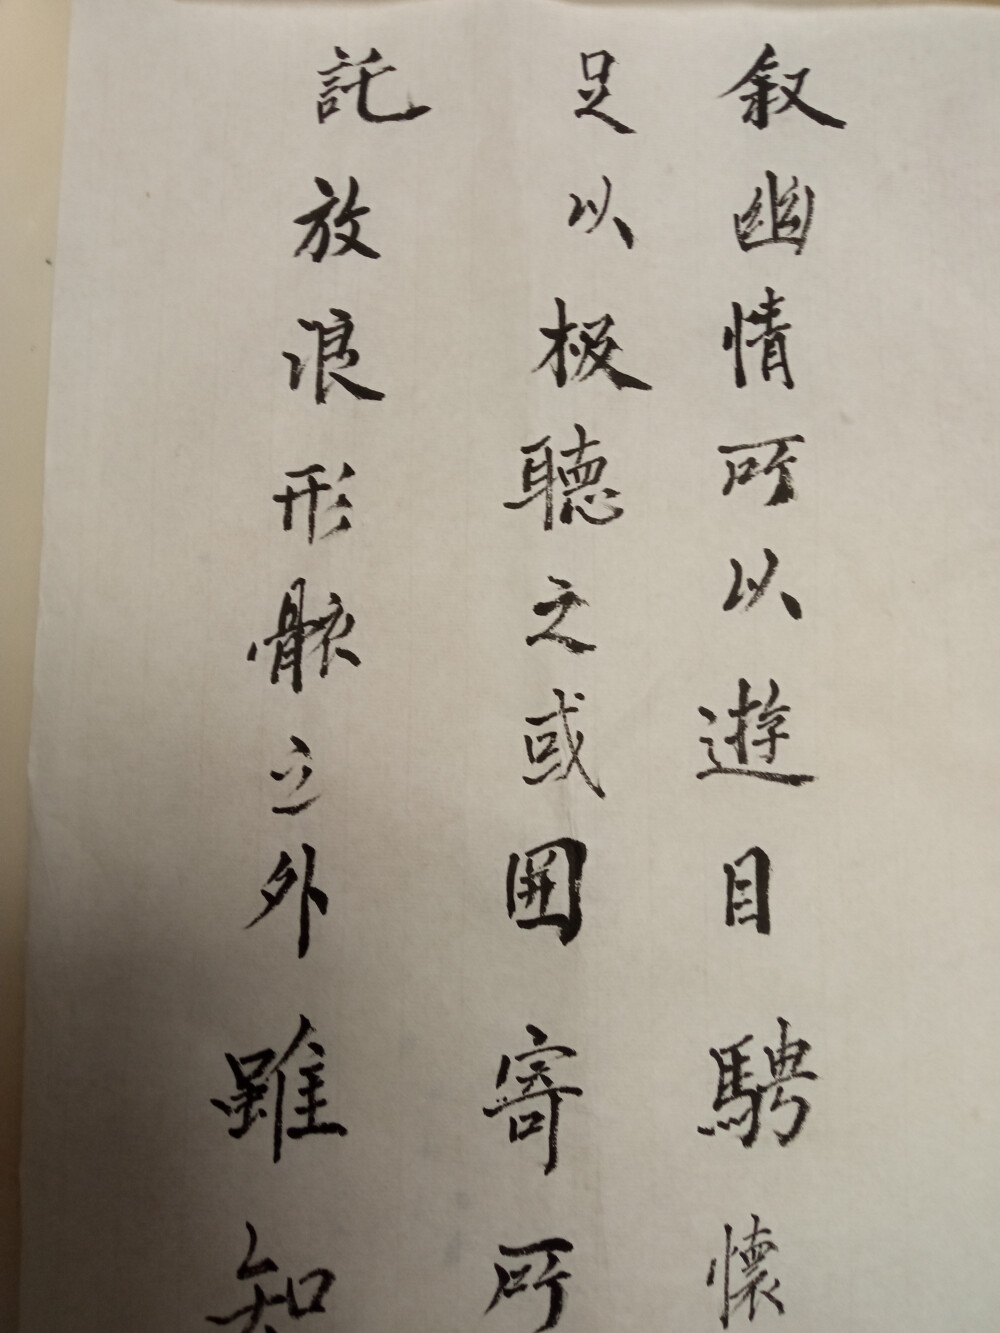 叙幽情所以遊目騁懷
足以極聽之或因寄所
託放浪形骸之外雖知